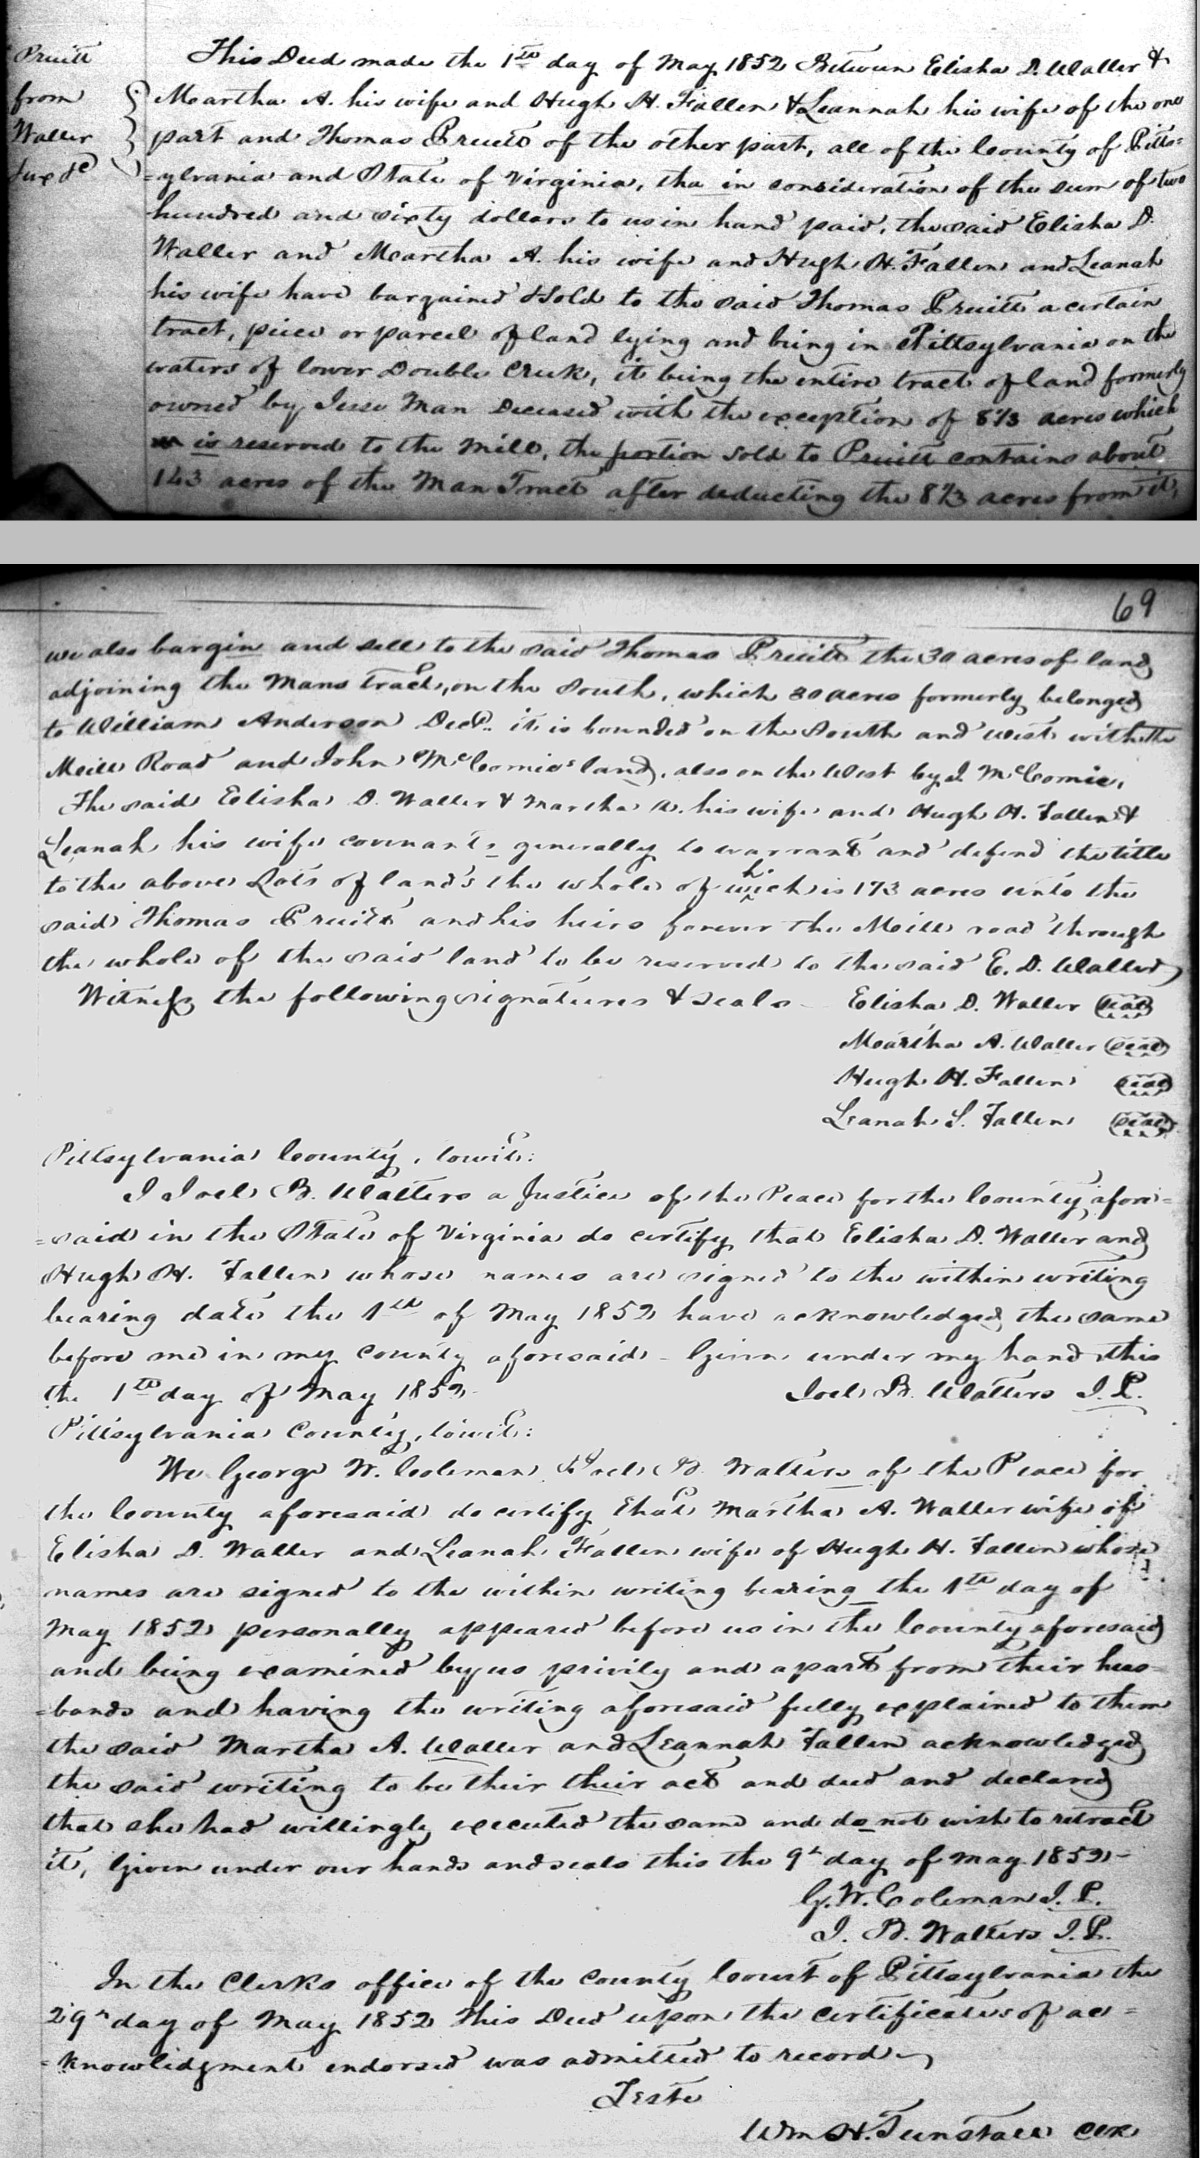 Pruitt
from
Waller
&ux &c
This Deed made the 1st day of May 1852 Between Elisha D. Waller &
Meartha A. his wife and Hugh H. Fallen & Leannah his wife of the one
part and Thomas Pruitt of the other part, all of the County of Pitts=
=ylvania and State of Virginia, tha in consideration of the sum of two
hundred and sixty dollars to us in hand paid, the said Elisha D.
Waller and Meartha A. his wife and Hugh H. Fallen and Leanah
his wife have bargained & Sold to the said Thomas Pruitt a certain
tract, piece or parcel of land lying and being in Pittsylvania on the
waters of lower Double Creek, it being the entire tract of land formerly
owned by Jesse Man Deceased with the exception of 8⅓ acres which
is reserved to the Mill, the portion sold to Pruitt contains about
143 acres of the Man Tract after deducting the 8⅓ acres from it,
69
we also bargin and sell to the said Thomas Pruitt the 30 acres of land
adjoining the Mans tract, on the South, which 30 acres formerly belonged
to William Anderson Decd. it is bounded on the South and west with the
Meill Road and John McComics land, also on the West by J. McComic,
The said Elisha D. Waller & Martha A. his wife and Hugh H. Fallen &
Leanah his wife covenants generally to warrant and defend the title
to the above Lots of land's the whole of which is 173 acres unto the
said Thomas Pruitt and his heirs forever the Meill road through
the whole of the said land to be reserved to the said E. D. Waller,
Witness the following signatures & seals Elisha D. Waller (seal)
Meartha A. Waller (seal)
Hugh H. Fallen (seal)
Leanah S. Fallen (seal)
Pittsylvania County, towit:
I Joel B. Walters a Justice of the Peace for the County afore=
=said in the State of Virginia do certify that Elisha D. Waller and
Hugh H. Fallen whose names are signed to the within writing
bearing date the 1st of May 1852 have acknowledged the same
before me in my County aforesaid - Given under my hand this
the 1st day of May 1852 Joel B. Walters J. P.
Pittsylvania County, towit:
We George W. Coleman, & Joel B. Walters of the Peace for
the County aforesaid do certify that Martha A. Waller wife of
Elisha D. Waller and Leanah Fallen wife of Hugh H. Fallen whose
names are signed to the within writing bearing the 1st day of
May 1852 personally appeared before us in the County aforesaid
and being examined by us privily and apart from their hus=
=bands and having the writing aforesaid fully explained to them
the said Martha A. Waller and Leannah Fallen acknowledged
the said writing to be their their act and deed and declared
that she had willingly executed the same and do not wish to retract
it, Given under our hands and seals this the 9th day of May 1852 -
G. W. Coleman J. P.
J. B. Walters J. P.
In the Clerks office of the County Court of Pittsylvania the
29th day of May 1852 This Deed upon the certificates of ac=
=knowledgment endorsed was admitted to record
Teste
Wm H. Tunstall Clk